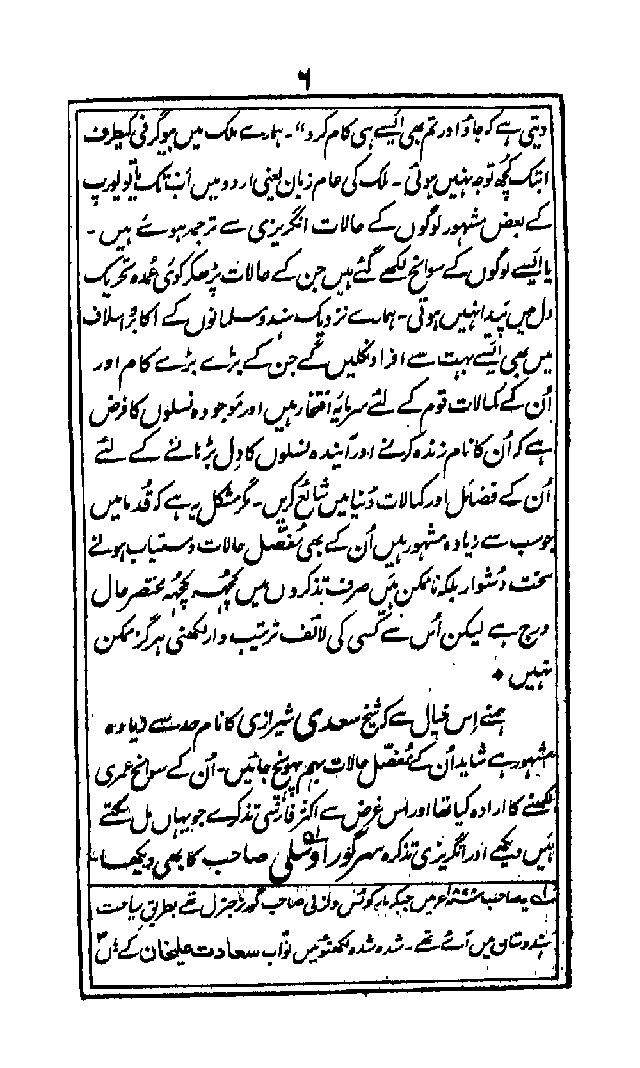 ۶
دیتی ہے کہ جاؤ اور تم بھی ایسے ہی کام کرو"۔ ہمارے ملک میں بیوگرفی کیطرف
ابتک کچھ توجہ نہیں ہوئی ۔ ملک کی عام زبان یعنی اردو میں اب تک یا تو یورپ
کے بعض مشہور لوگوں کے حالات انگریزی سے ترجمہ ہوے ہیں ۔
یا ایسے لوگوں کے سوانح لکھے گئے ہیں جن کے حالات پڑھکر کوئی عمدہ تحریک
دل میں پیدا نہیں ہوتی ۔ ہمارے نزدیک ہندو مسلمانوں کے اکابر و اسلاف
میں بھی ایسے بہت سے افراد نکلیں گے جن کے بڑے بڑے کام اور
اُن کے کمالات قوم کے لئے سرمایۂ افتخار ہیں اور موجودہ نسلوں کا فرض
ہے کہ اُن کا نام زندہ کرنے اور آیندہ نسلوں کا دل بڑہانے کے لئے
اُن کے فضائل اور کمالات دُنیا میں شایع کریں ۔ مگر مشکل یہ ہے کہ قُدما میں
جو سب سے زیادہ مشہور ہیں اُن کے بھی مُفصّل حالات دستیاب ہونے
سخت دُشوار بلکہ ناممکن ہیں صرف تذکروں میں کچھہ کچھہ مختصر حال
درج ہے لیکن اُس سے کسی کی لائف ترتیب وار لکھنی ہرگز ممکن
نہیں ۔
ہمنے اِس خیال سے کہ شیخ سعدی شیرازی کا نام حد سے زیادہ
مشہور ہے شاید اُن کے مُفصّل حالات بہم پہونچ جائیں ۔ اُن کے سوانح عمری
لکھنے کا ارادہ کیا تھا اور اس غرض سے اکثر فارسی تذکرے جو یہاں مل سکتے
ہیں دیکھے اور انگریزی تذکرہ سرگور اوسلی صاحب کا بھی دیکھا
لہ یہ صاحب میں جبکہ مارکوئس ولزلی صاحب گورنر جنرل تھے بطریق سیاحت
ہندوستان میں آئے تھے ۔ شدہ شدہ لکھنؤ میں نواب سعادت علیخان کے ہاں